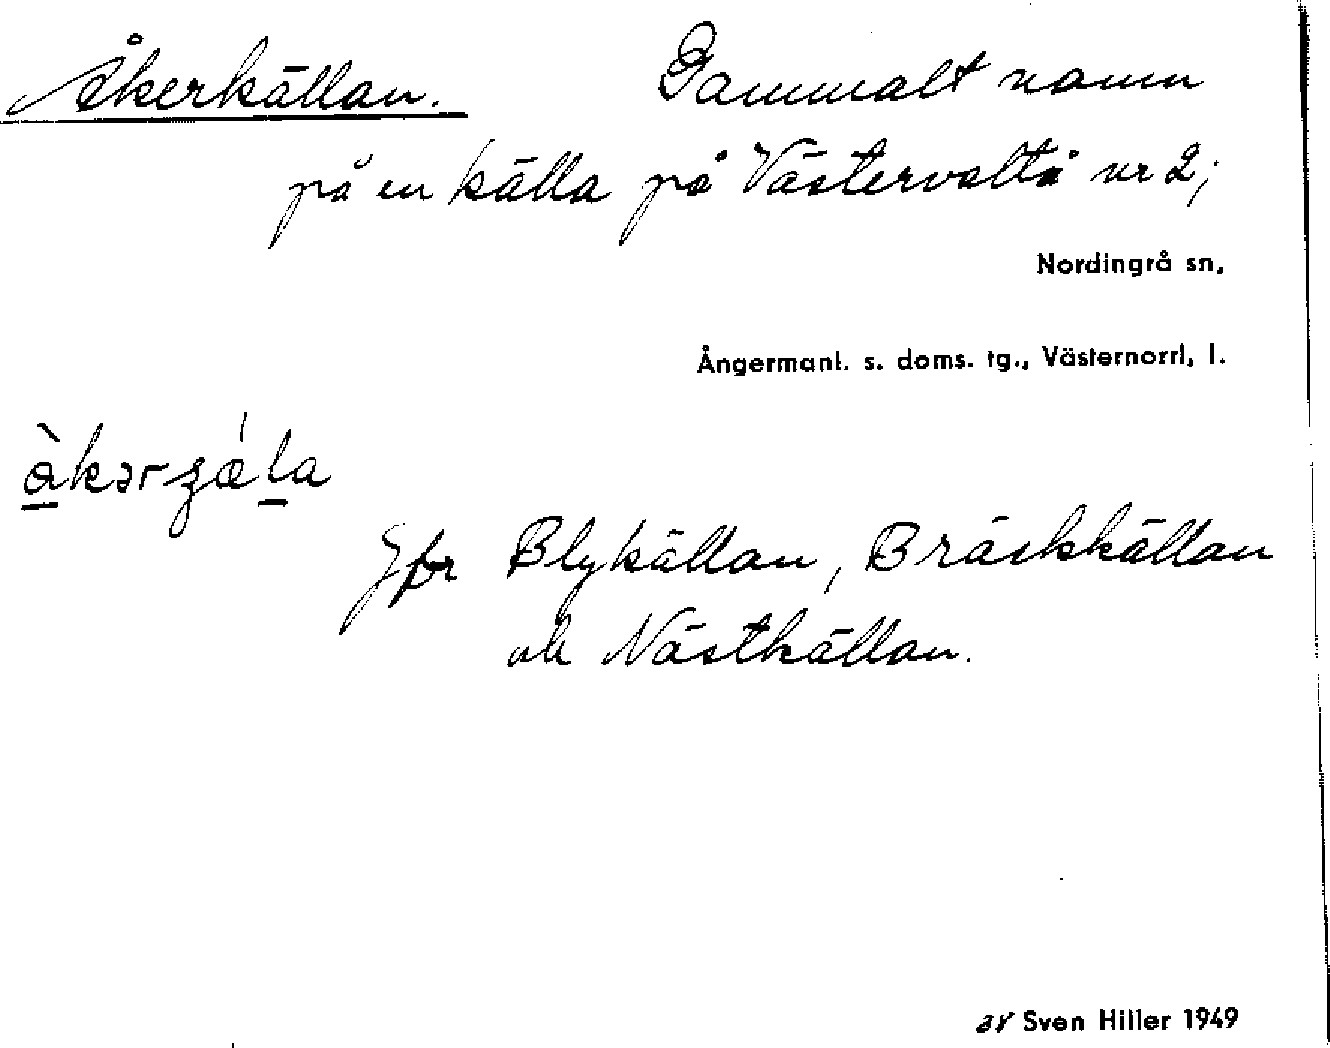 Åkerkällan. Gammalt namn
på en källa på Västervalto nr 2;
Nordingrå sn,
Ångermanl. s. doms. tg., Västernorrl. l.
åkərʒæ̀la
Jfr Blykällan, Bräskkällan
och Nästkällan.
av Sven Hiller 1949